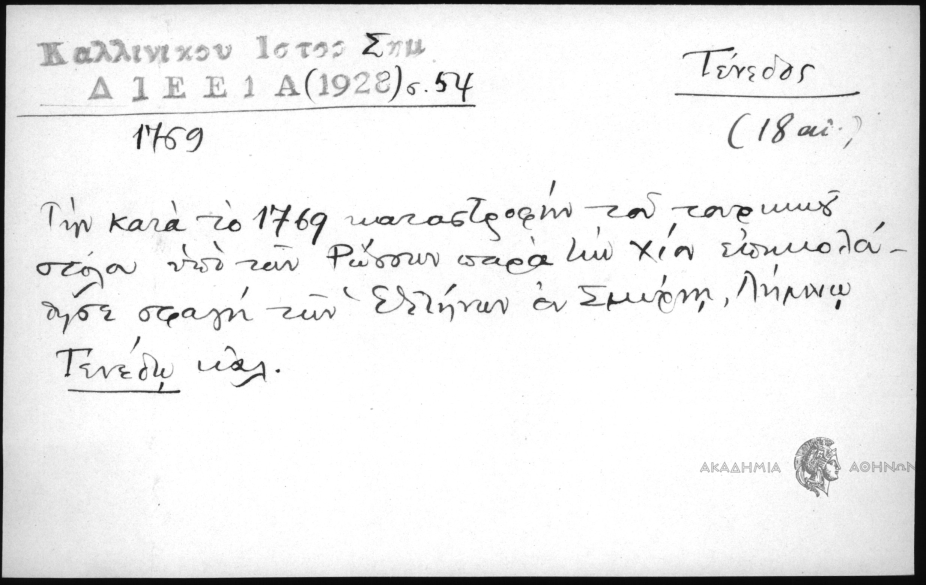 Καλλινίκου Ιστορ Σημ
Τένεδος
Δ Ι Ε Ε Ι Α (1928) σ. 54
1769
(18 αἰ.)
Τὴν κατὰ τὸ 1769 καταστροφὴν τοῦ τουρκικοῦ
στόλου ὑπὸ τῶν Ρώσσων παρὰ τὴν Χίον ἐπηκολού-
θησε σφαγὴ τῶν Ἑλλήνων ἐν Σμύρνῃ, Λήμνῳ
Τενέδῳ κ.λ.
ΑΚΑΔΗΜΙΑ ΑΘΗΝΩΝ